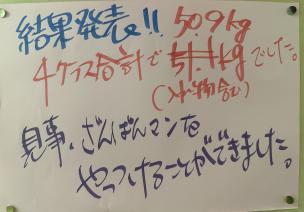 結果発表!! 50.9kg
4ケース合計で 51.1kgでした。
(入れ物含む)
見事、ざんぱんマンを
やっつけることができました。